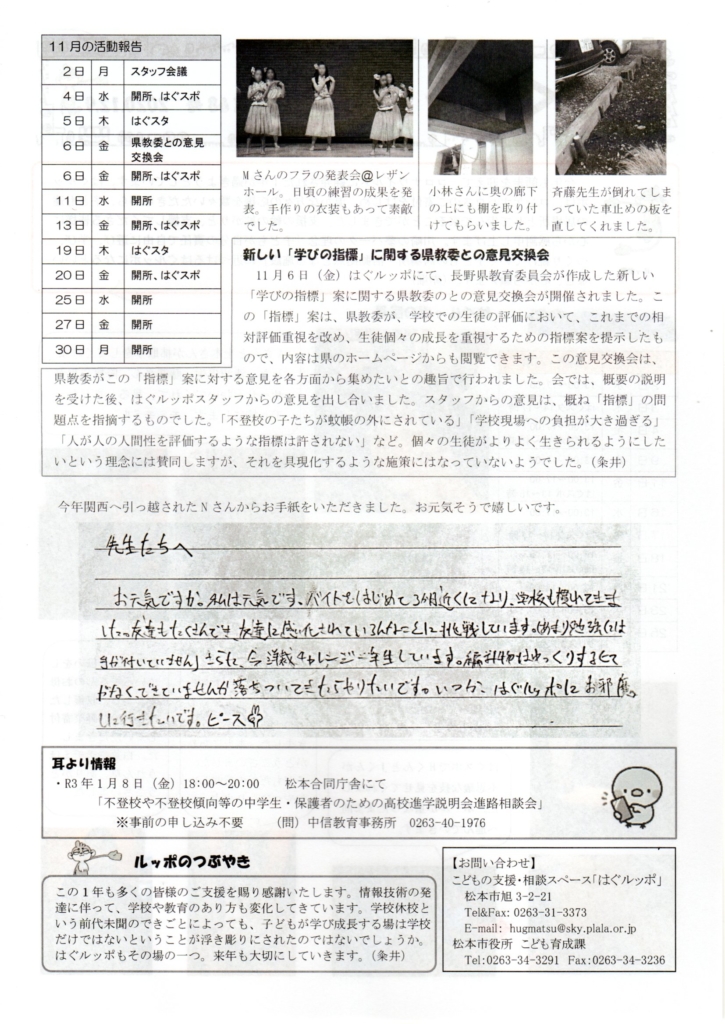 11月の活動報告
2日 月 スタッフ会議
4日 水 開所、はぐスポ
5日 木 はぐスタ
6日 金 県教委との意見
交換会
6日 金 開所、はぐスポ
11日 水 開所
13日 金 開所、はぐスポ
19日 木 はぐスタ
20日 金 開所、はぐスポ
25日 水 開所
27日 金 開所
30日 月 開所
Mさんのフラの発表会@レザン
ホール。日頃の練習の成果を発
表。手作りの衣装もあって素敵
でした。
小林さんに奥の廊下
の上にも棚を取り付
けてもらいました。
斉藤先生が倒れてしま
っていた車止めの板を
直してくれました。
新しい「学びの指標」に関する県教委との意見交換会
11月6日（金）はぐルッポにて、長野県教育委員会が作成した新しい
「学びの指標」案に関する県教委のとの意見交換会が開催されました。こ
の「指標」案は、県教委が、学校での生徒の評価において、これまでの相
対評価重視を改め、生徒個々の成長を重視するための指標案を提示したも
ので、内容は県のホームページからも閲覧できます。この意見交換会は、
県教委がこの「指標」案に対する意見を各方面から集めたいとの趣旨で行われました。会では、概要の説明
を受けた後、はぐルッポスタッフからの意見を出し合いました。スタッフからの意見は、概ね「指標」の問
題点を指摘するものでした。「不登校の子たちが蚊帳の外にされている」「学校現場への負担が大き過ぎる」
「人が人の人間性を評価するような指標は許されない」など。個々の生徒がよりよく生きられるようにした
いという理念には賛同しますが、それを具現化するような施策にはなっていないようでした。（条井）
今年関西へ引っ越されたNさんからお手紙をいただきました。お元気そうで嬉しいです。
先生たちへ
お元気ですか。私は元気です。バイトをはじめて3か月近くになり、学校も慣れてきま
した。友達もたくさんでき、友達に感化されていろんなことに挑戦しています。(あまり勉強には
手が付いていません)さらに、今 洋裁チャレンジ一年生しています。編み物はゆっくりするとて
がなくできていませんが落ちついてきたらやりたいです。いつか、はぐルッポにお邪魔
しに行きたいです。ピース
耳より情報
・R3年1月8日（金）18:00～20:00 松本合同庁舎にて
「不登校や不登校傾向等の中学生・保護者のための高校進学説明会進路相談会」
※事前の申し込み不要 （問）中信教育事務所 0263-40-1976
ルッポのつぶやき
この1年も多くの皆様のご支援を賜り感謝いたします。情報技術の発
達に伴って、学校や教育のあり方も変化してきています。学校休校と
いう前代未聞のできごとによっても、子どもが学び成長する場は学校
だけではないということが浮き彫りにされたのではないでしょうか。
はぐルッポもその場の一つ。来年も大切にしていきます。（条井）
【お問い合わせ】
こどもの支援・相談スペース「はぐルッポ」
松本市旭3-2-21
Tel&Fax: 0263-31-3373
E-mail: hugmatsu@sky.plala.or.jp
松本市役所 こども育成課
Tel:0263-34-3291 Fax:0263-34-3236